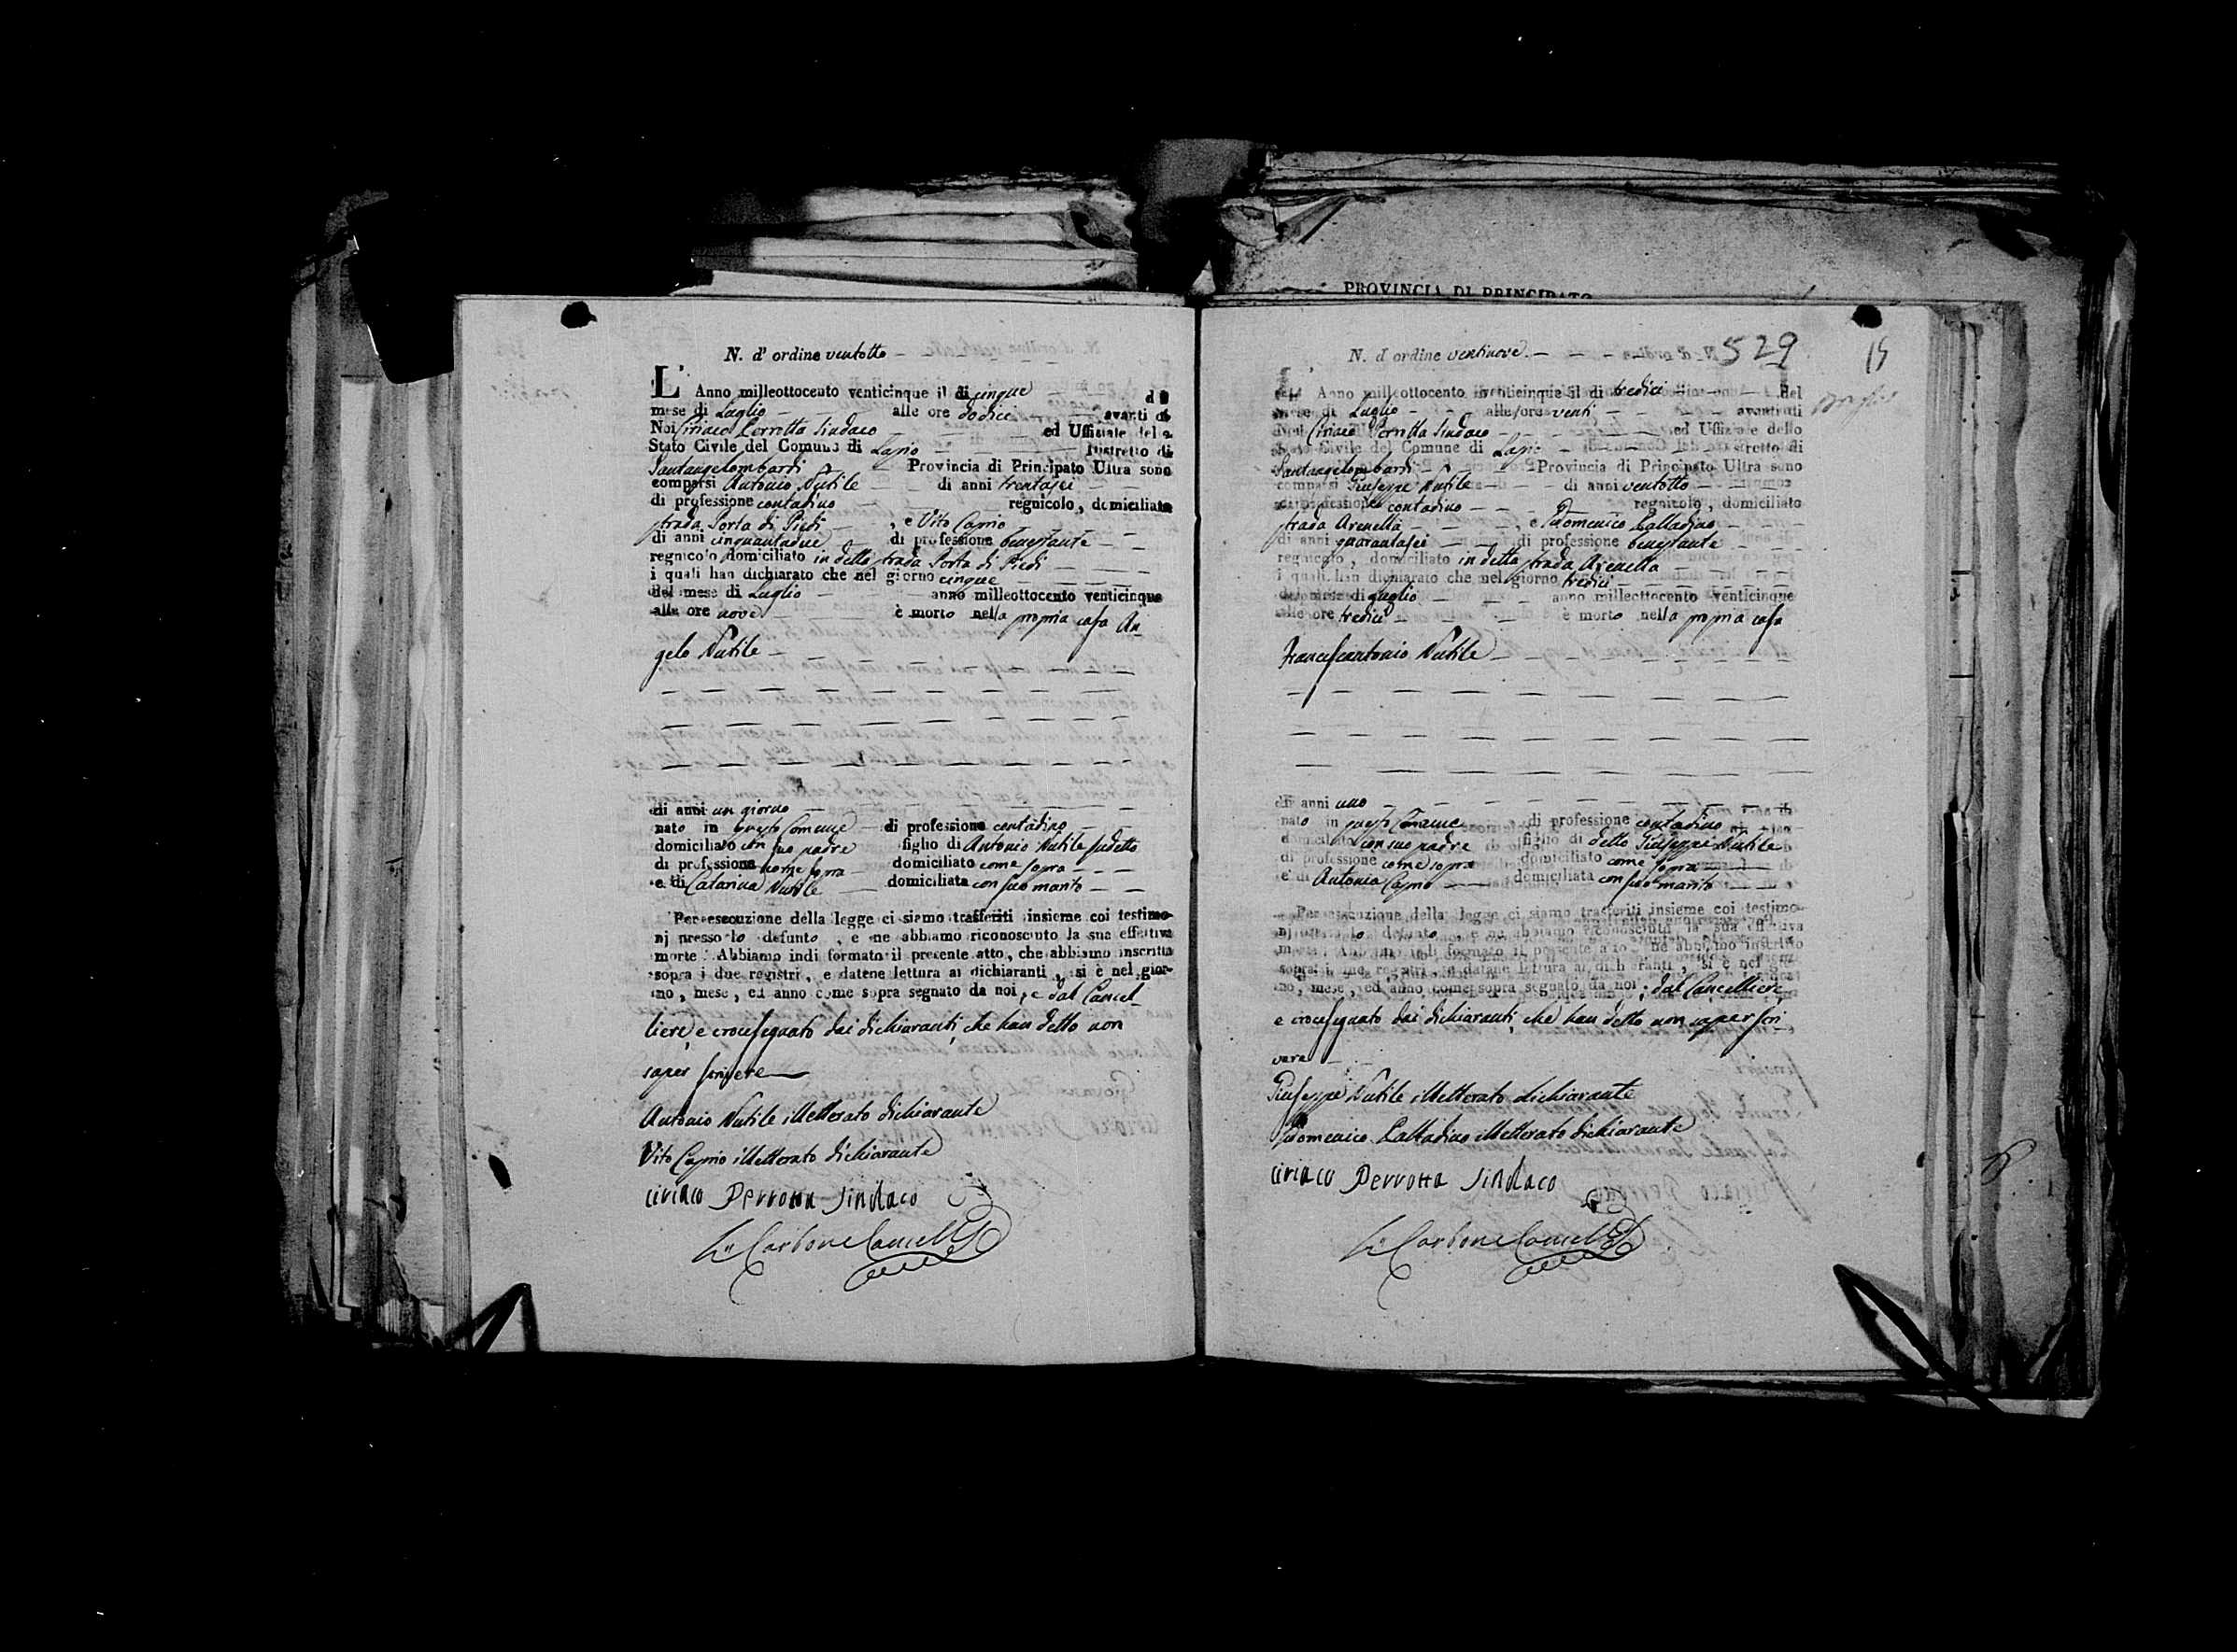 N. d' ordine ventotto
L' Anno milleottocento venticinque il di cinque del
mese di Luglio alle ore dodici avanti di
Noi Ciriaco Perrotta Sindaco ed Uffiziale dello
Stato Civile del Comune di Lapio Distretto di
Santangelombardi Provincia di Principato Ultra sono
comparsi Antonio Nutile di anni trentasei
di professione contadino regnicolo, domiciliato
strada Porta di Piedi , e Vito Caprio
di anni cinquantadue di professione benestante
regnicolo domiciliato in detta strada Porta di Piedi
i quali han dichiarato che nel giorno cinque
del mese di Luglio anno milleottocento venticinque
alle ore nove è morto nella propria casa An-
gelo Nutile
di anni un giorno
nato in questo Comune di professione contadino
domiciliato con suo padre figlio di Antonio Nutile sudetto
di professione come sopra domiciliato come sopra
e di Catarina Nutile domiciliata con suo marito
Per esecuzione della legge ci siamo trasferiti insieme coi testimo-
nj presso lo defunto , e ne abbiamo riconosciuto la sua effettiva
morte. Abbiamo indi formato il presente atto, che abbiamo inscritto
sopra i due registri, e datene lettura ai dichiaranti, si è nel gior-
no, mese, ed anno come sopra segnato da noi, e dal Cancel-
liere, e crocesegnato dai dichiaranti, che han detto non
saper scrivere
Antonio Nutile illetterato dichiarante
Vito Caprio illetterato dichiarante
Ciriaco Perrotta Sindaco
Carbone Cancell
PROVINCIA DI PRINCIPATO
529
15
N. d ordine ventinove
L' Anno milleottocento venticinque il di tredici del
mese di Luglio alle ore venti avanti di
Noi Ciriaco Perrotta Sindaco ed Uffiziale dello
Stato Civile del Comune di Lapio Distretto di
Santangelombardi Provincia di Principato Ultra sono
comparsi Giuseppe Nutile di anni ventotto
di professione contadino regnicolo, domiciliato
strada Arenella , e Domenico Palladino
di anni quarantasei di professione benestante
regnicolo, domiciliato in detta strada Arenella
i quali han dichiarato che nel giorno tredici
del mese di Luglio anno milleottocento venticinque
alle ore tredici è morto nella propria casa
Francescantonio Nutile
di anni uno
nato in questo Comune di professione contadino
domiciliato con suo padre figlio di detto Giuseppe Nutile
di professione come sopra domiciliato come sopra
e di Antonia Caprio domiciliata con suo marito
Per esecuzione della legge ci siamo trasferiti insieme coi testimo-
nj presso lo defunto , e ne abbiamo riconosciuta la sua effettiva
morte. Abbiamo indi formato il presente atto, che abbiamo inscritto
sopra i due registri, e datane lettura ai dichiaranti, si è nel gior-
no, mese, ed anno come sopra segnato da noi, dal Cancelliere
e crocesegnato dai dichiaranti, che han detto non saper scri-
vere
Giuseppe Nutile illetterato dichiarante
Domenico Palladino illetterato dichiarante
Ciriaco Perrotta Sindaco
Carbone Cancell